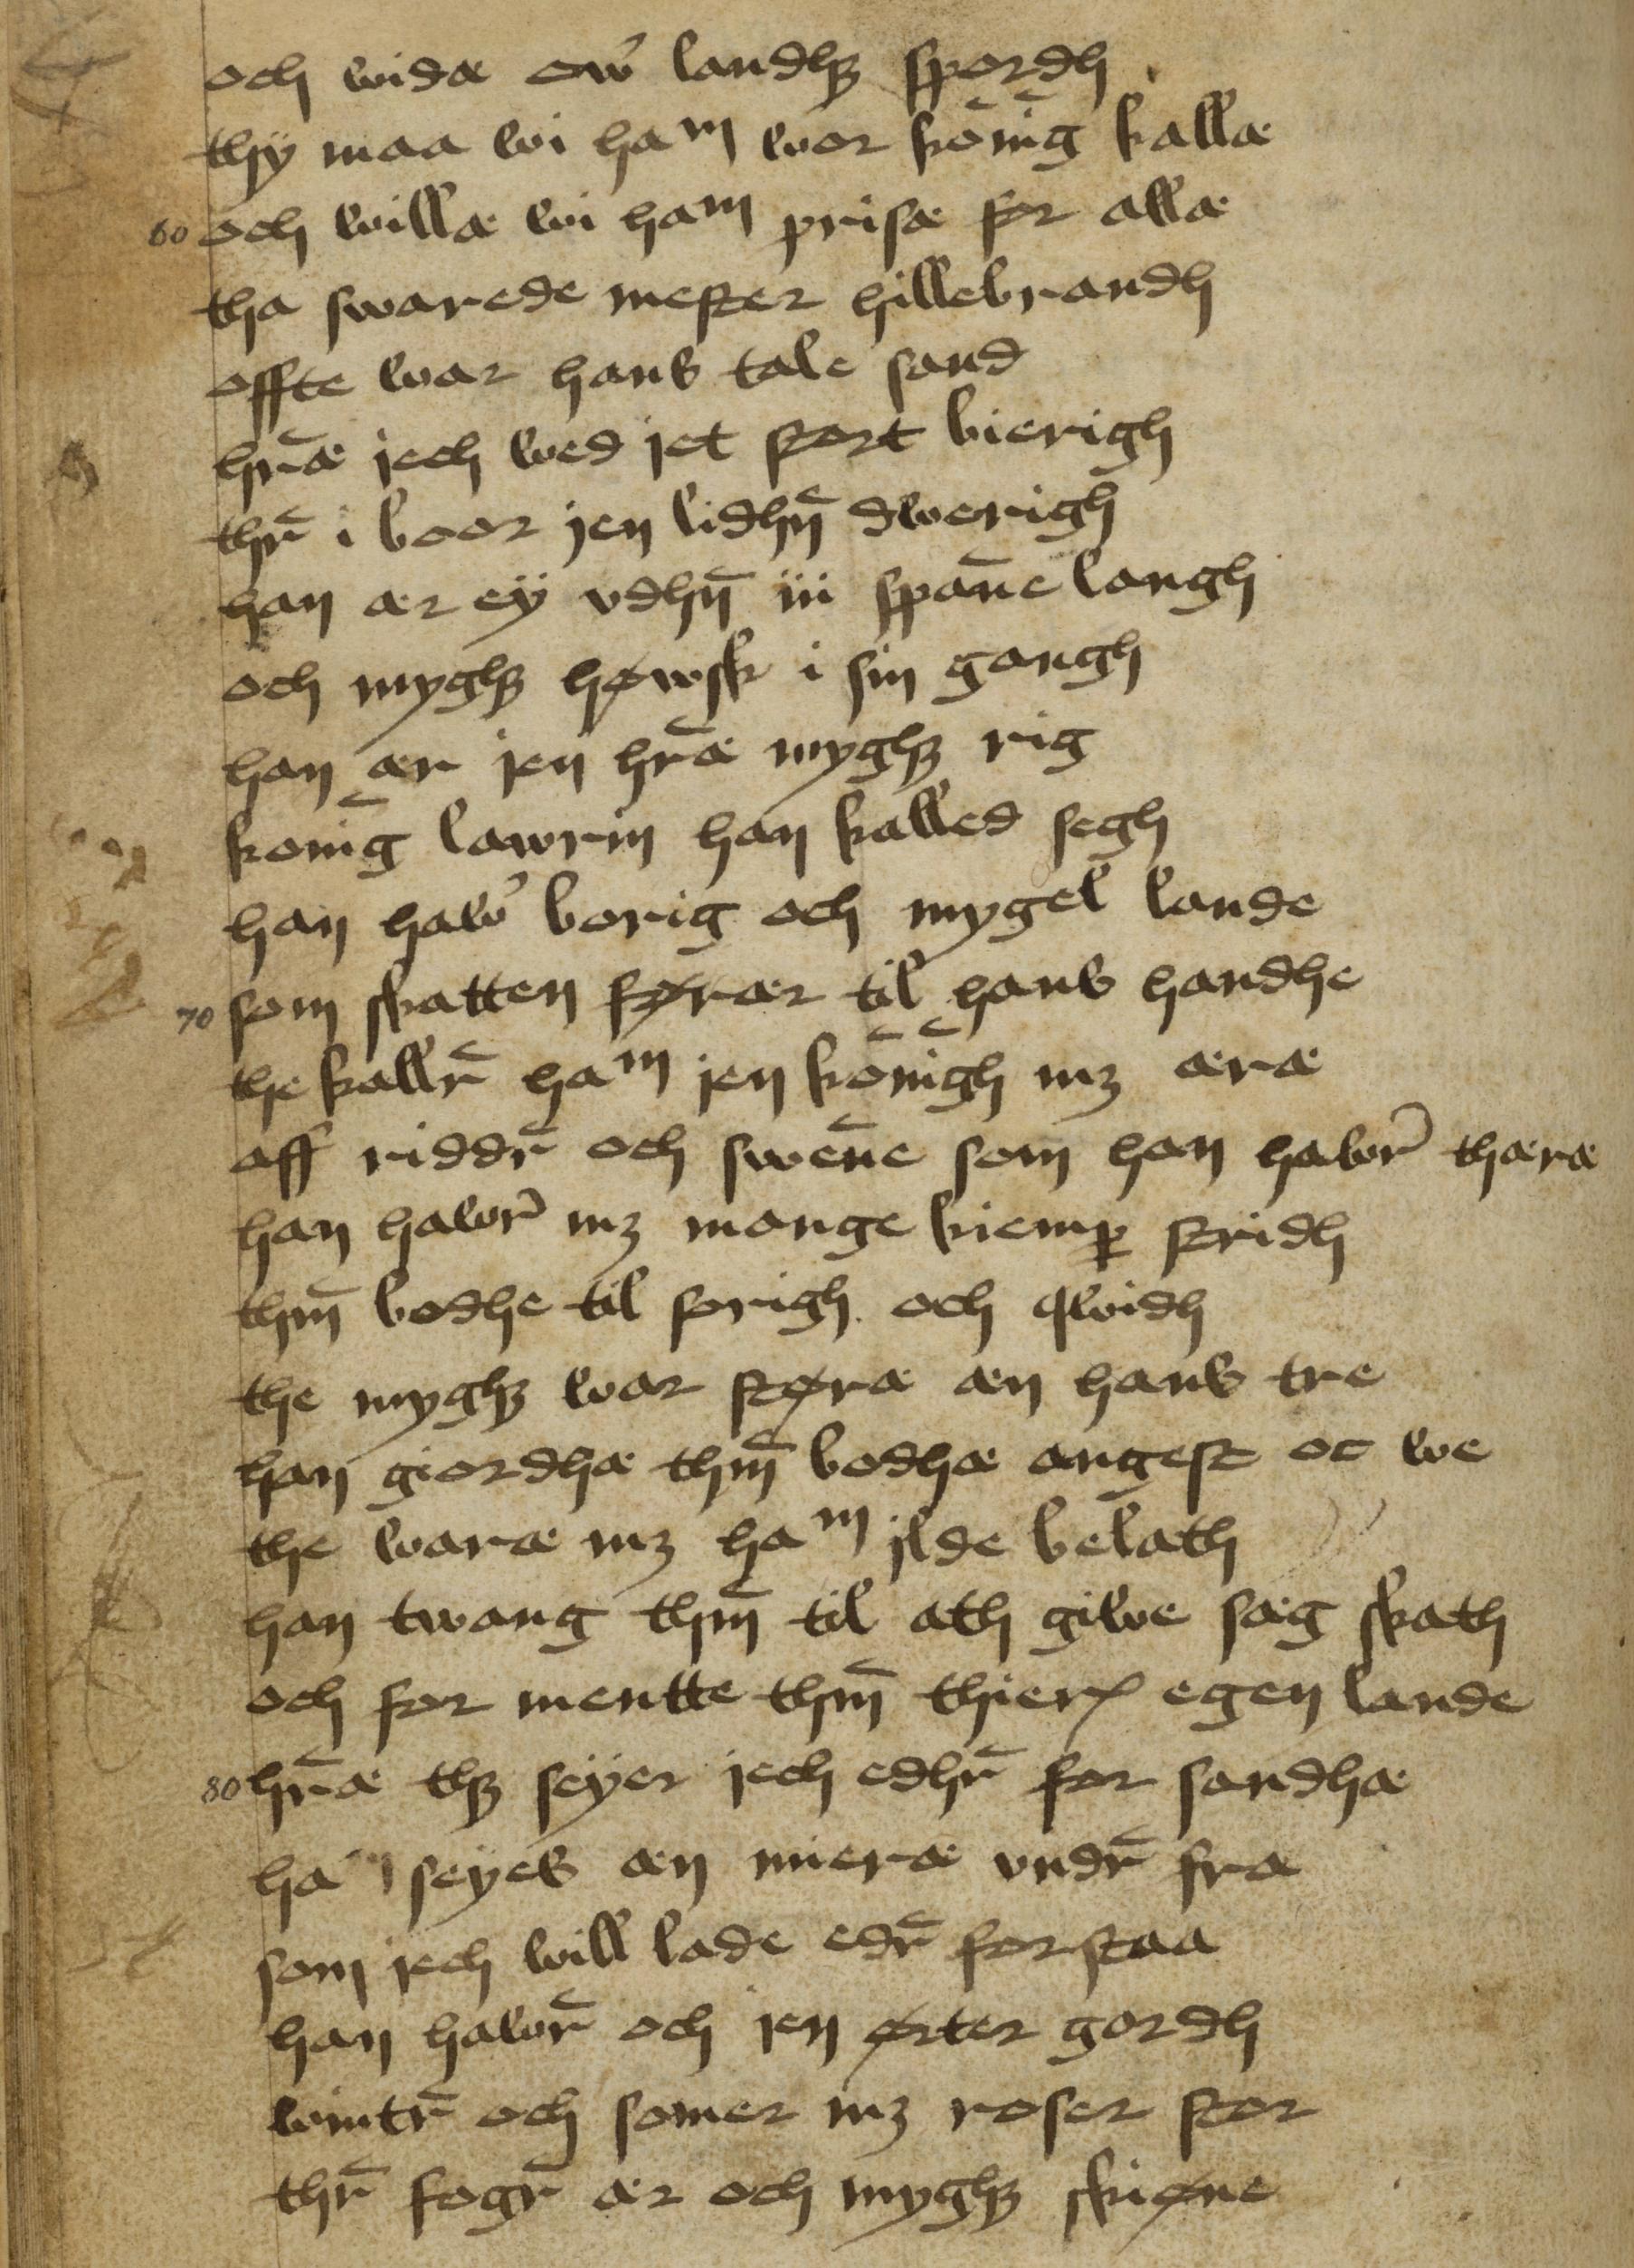 och widæ ow̓ landhꝫ spordh
thÿ maa wi haᵐ wor kōnīg kallæ
60 och willæ wi haᵐ prisæ for allæ
tha swarede mester hillebrandh
offte war hanß tale sand
hr̄æ jech wed jet stort bierigh
thr̄ i boor jen lidhn̄ dwerigh
han ær eÿ vdhn̄ iii spān̄e langh
och myghꝫ høwsk i sin gangh
han ær jen hr̄æ myghꝫ rig
konīg lawrin han kalled segh
han haw̓ borig och mygel lande
70 som skatten førær til hanß handhe
the kallr̄ haᵐ jen kōnīgh mꝫ æræ
aff riddr̄ och swēne som han hawr̓ thæræ
han hawr̓ mꝫ mange kiemꝑ stridh
thm̄ bodhe til sorigh och qwidh
the myghꝫ war støræ æn hanß tre
han giordhæ thm̄ bodhæ angest oc we
the waræ mꝫ haᵐ jlde belath
han twang thm̄ til ath giwe sæg skath
och for mentte thm̄ thierꝭ egen lande
80 hr̄æ thꝫ seÿer jech edhr̄ for sandhæ
haᵐ seÿeß æn mieræ vndr̄ fra
som jech will lade edr̄ forstaa
han hawr̄ och jen ørter gordh
wintr̄ och somer mꝫ roser stor
thr̄ fogr̄ ær och myghꝫ skiøne